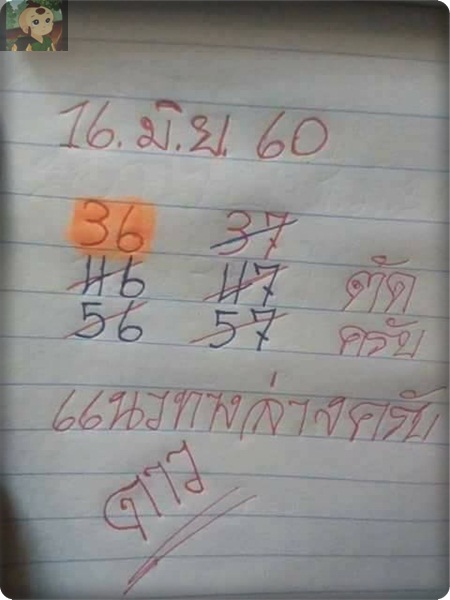 16. มิ.ย. 60
36 37
46 47 ตัด
56 57 ครับ
แนวทางล่างครับ
ดาว